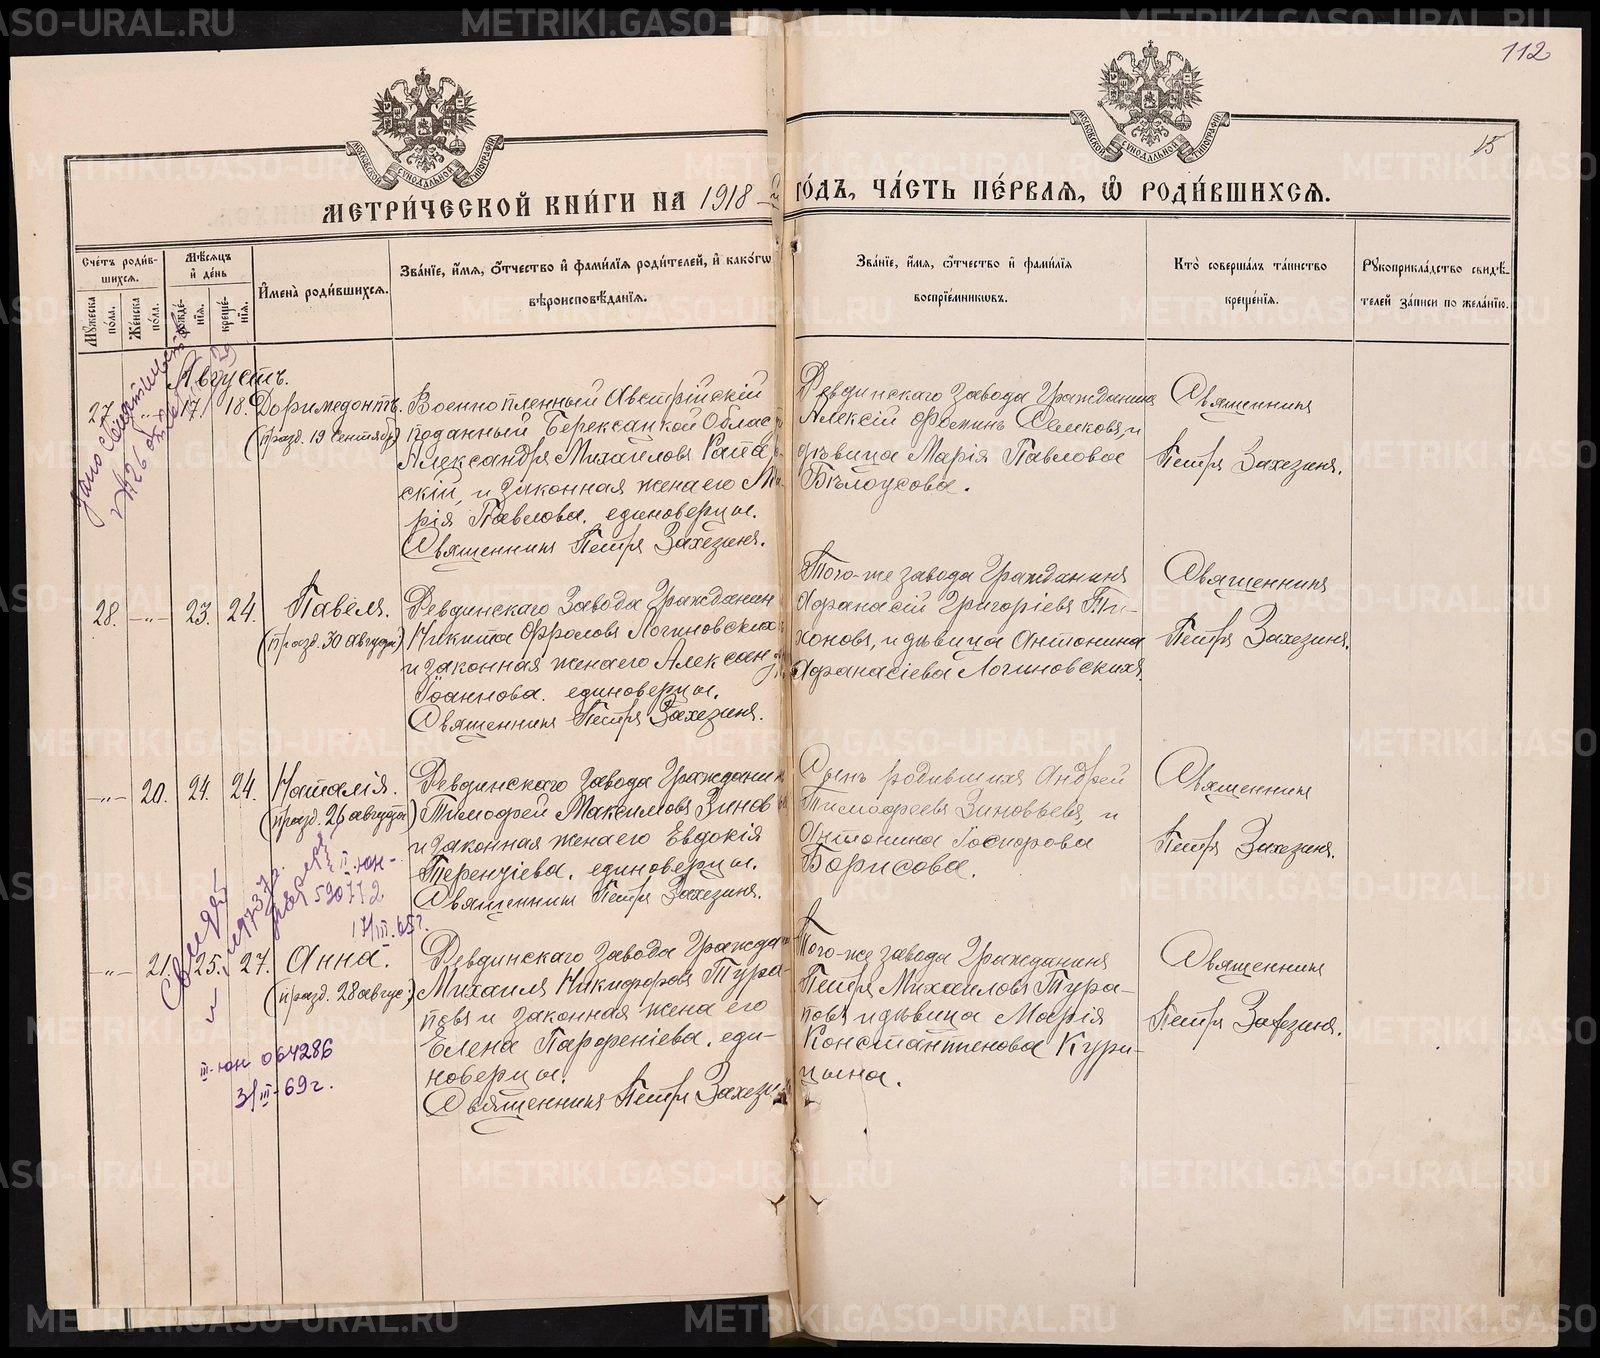 112
15
МОСКОВСКОЙ СУНОДАЛЬНОЙ ТИПОГРАФІИ
МОСКОВСКОЙ СУНОДАЛЬНОЙ ТИПОГРАФІИ
МЕТРИ́ЧЕСКОЙ КНИ́ГИ НА 1918 ГО́ДЪ, ЧА́СТЬ ПЕ́РВАЯ, Ѡ РОДИ́ВШИХСЯ.
Сче́тъ роди́в-
шихся.
Мꙋ́жеска по́ла.
Же́нска по́ла.
Мѣ́сяцъ
и҆ де́нь
рожде́-
нїѧ.
креще́-
нїѧ.
И҆мена̀ роди́вшихся.
Зва́нїе, и҆́мѧ, ѻ҆́тчество и҆ фами́лїѧ роди́телей, и҆ како́гѡ
вѣроисповѣ́данїѧ.
Зва́нїе, и҆́мѧ, ѻ҆́тчество и҆ фами́лїѧ
воспрїе́мникѡвъ.
Кто̀ соверша́лъ та́инство
креще́нїѧ.
Рꙋкоприкла́дство свидѣ́-
телей за́писи по жела́нїю.
Августъ.
27. -"- 17. 18. Доримедонтъ.
(празд. 19 сентябр)
Военнопленный Австрійскій
подданный Берексацкой Облас
Александръ Михаиловъ
скій, и законная жена его Ма-
рія Павлова. единоверцы.
Священникъ Петръ Захезинъ.
Ревдинскаго Завода Гражданинъ
Алексій Фоминъ и
дѣвица Марія Павлова
Бѣлоусова.
Священникъ
Петръ Захезинъ.
28. -"- 23. 24. Павелъ.
(празд. 30 августа)
Ревдинскаго Завода Гражданин
Никита Фроловъ Логиновских
и законная жена его Алексан
Іоаннова. единоверцы.
Священникъ Петръ Захезинъ.
Того-же завода Гражданинъ
Афанасій Григоріевъ Ти-
хоновъ, и дѣвица Антонина
Афанасіева Логиновскихъ
Священникъ
Петръ Захезинъ.
-"- 20. 24. 24. Наталія.
(празд. 26 августа)
Ревдинскаго Завода Граждани
Тимофей Максимовъ Зинов
и законная жена его Евдокія
Терентіева. единоверцы.
Священникъ Петръ Захезинъ.
Сынъ родившихъ Андрей
Тимофеевъ Зиновьевъ, и
Антонина
Борисова.
Священникъ
Петръ Захезинъ.
II-юн-
530772
17/III.65г.
-"- 21. 25. 27. Анна.
(празд. 28 август)
Ревдинскаго завода Гражда
Михаилъ Никифоровъ Тура-
повъ и законная жена его
Елена Парфеніева. еди-
новерцы.
Священникъ Петръ Захези
Того-же завода Гражданинъ
Петръ Михаиловъ Тура-
повъ и дѣвица Марія
Константенова Кури-
цына.
Священникъ
Петръ Захезинъ.
III-юн 064286
31/III-69г.
METRIKI.GASO-URAL.RU